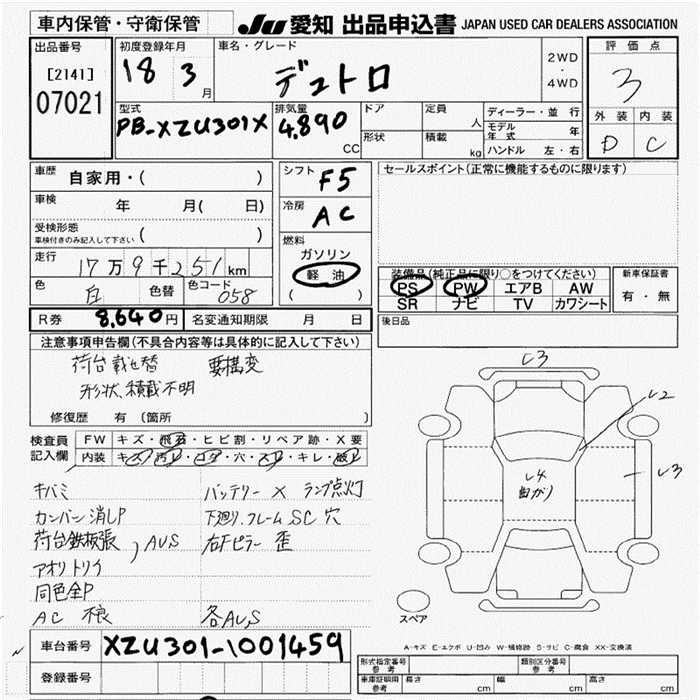 車内保管・守衛保管 JU 愛知 出品申込書 JAPAN USED CAR DEALERS ASSOCIATION
出品番号 初度登録年月 車名・グレード 2WD・4WD 評価点
[2141] 18 3月 デュトロ 3
07021
型式 排気量 ドア 定員 人 ディーラー・並行 外装 内装
PB-XZU301X 4.890 CC 形状 積載 kg モデル年式 年 D C
ハンドル 左・右
車歴 自家用・( ) シフト F5 セールスポイント(正常に機能するものに限ります)
車検 年 月( 日) 冷房 AC
受検形態 ( )
車検付きのみ記入して下さい
燃料
走行 17万9千251km ガソリン 装備品(純正品に限り○をつけてください) 新車保証書
軽油 PS PW エアB AW 有・無
色 白 色替 色コード 058 ( ) SR ナビ TV カワシート
R券 8,640円 名変通知期限 月 日 後日品
注意事項申告欄(不具合内容等は具体的に記入して下さい)
荷台載せ替 要構変
形状、積載不明
修復歴 有 (箇所 )
検査員記入欄 FW キズ・飛石・ヒビ割・リペア跡・X要
内装 キズ・汚レ・コゲ・穴・スレ・キレ・破レ
キバミ バッテリーX ランプ点灯
カンバン消しP 下廻り、フレームSC穴
荷台鉄板張、AUS 右Fピラー歪
アオリトリク
同色全P
AC 不良 各AUS
U3
U2
U4
曲がり
U3
スペア
A-キズ E-エクボ U-凹み W-補修跡 S-サビ C-腐食 XX-交換済
車台番号 XZU301-1001459
登録番号
形式指定番号 参考 類別区分番号 参考
車庫証明用 参考 長さ cm 幅 cm 高さ cm